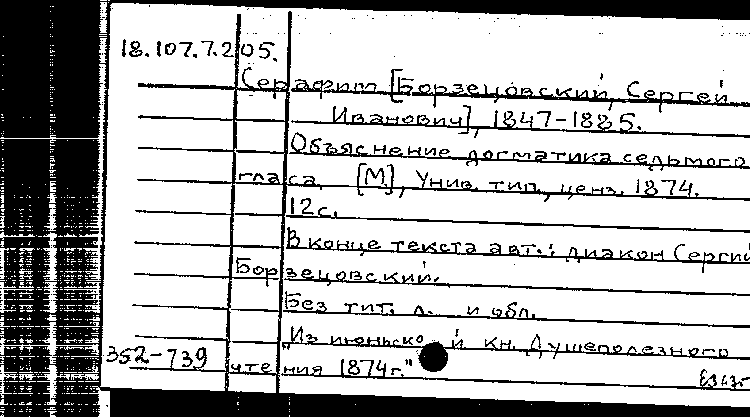 18.107.7.205.
Серафим [Борзецовский, Сергей
Иванович], 1847-1885.
Объяснение догматика седьмого
гласа. [М.], Унив. тип., ценз. 1874.
12 с.
В конце текста авт.: диакон Сергий
Борзецовский.
Без тит. л. и обл.
"Из июньской кн. Душеполезного
352-739 чтения 1874г."